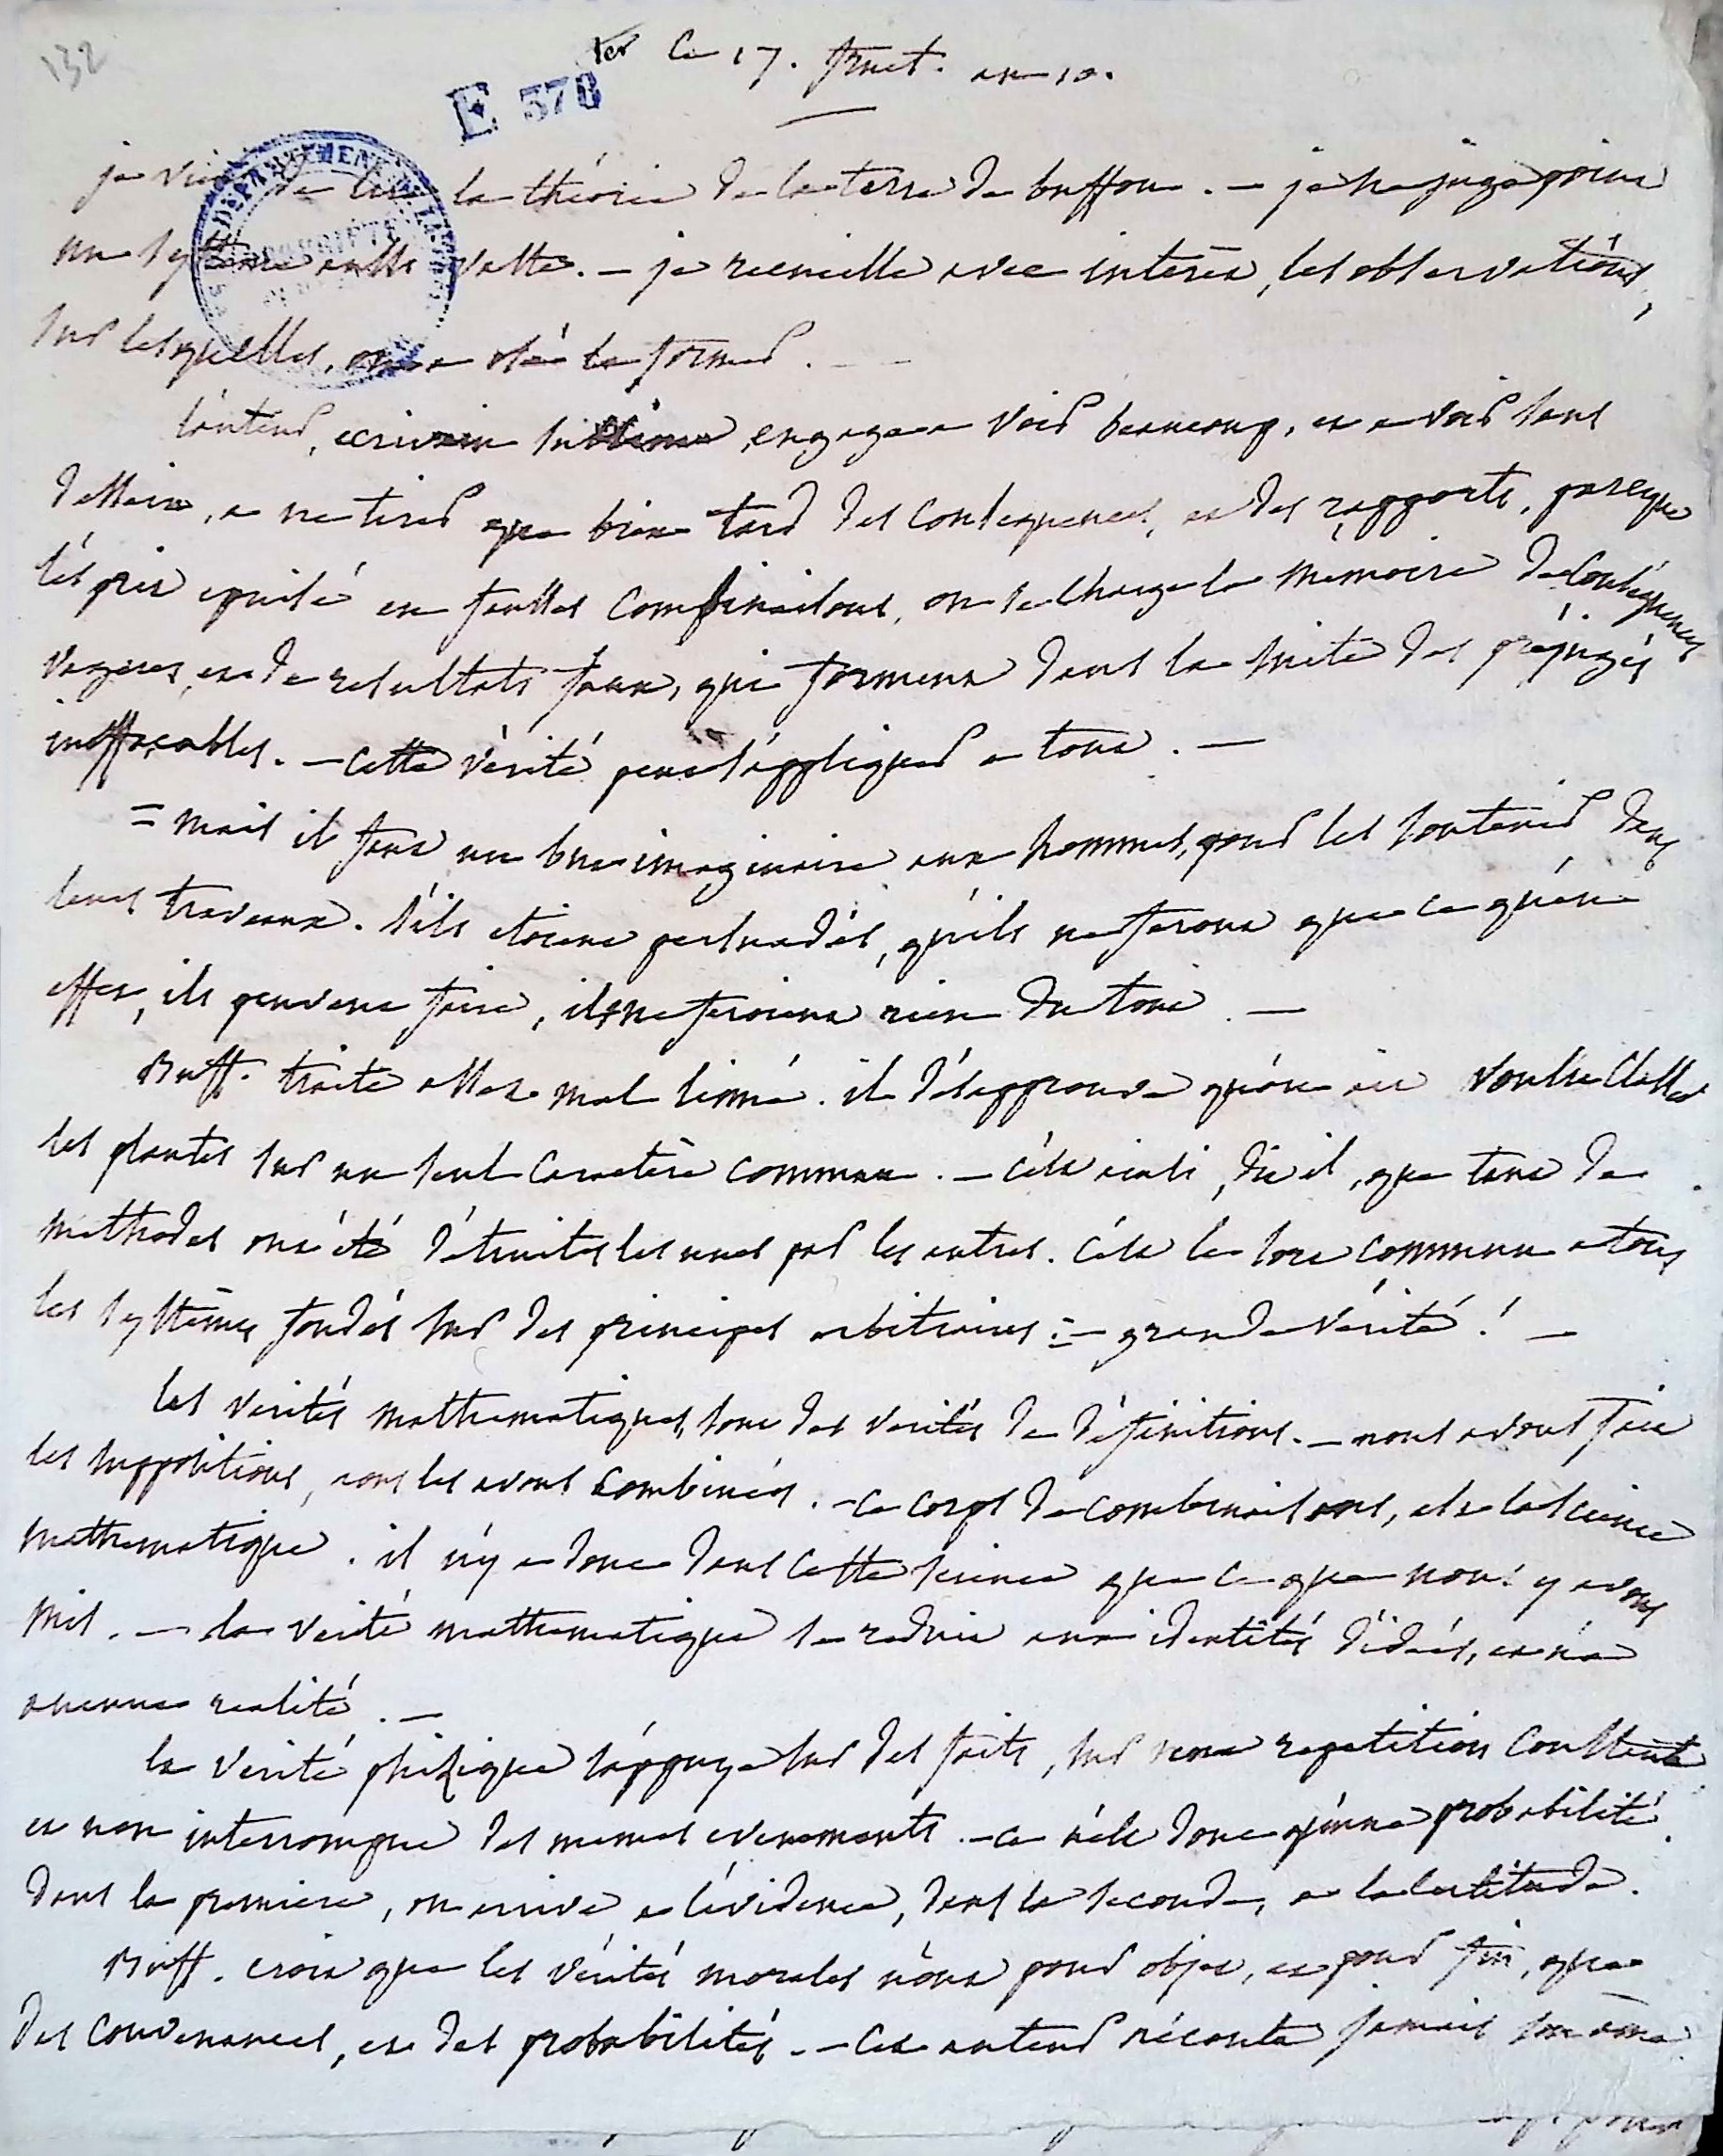 132
Ce 17. fruct. an 10.
E 378
je viens de lire la théorie de la terre de buffon. — je ne juge point
un systême aussi vaste. — je recueille avec intérêt, les observations,
sur lesquelles, on a osé le former. —
l'auteur, écrivain sublime, engage a voir beaucoup, et a voir sans
dessein, a ne tirer que bien tard des consequences, et des rapports, parceque
l'esprit epuisé en fausses combinaisons, on se charge la mémoire de conséquences
vagues, et de resultats faux, qui forment dans la suite des préjugés
ineffaçables. — cette vérité peut s'appliquer a tout. —
= mais il faut un but imaginaire aux hommes, pour les soutenir dans
leurs travaux. s'ils etoient persuadés, qu'ils ne feront que ce qu'en
effet, ils peuvent faire, ils ne feroient rien du tout. —
Buff. traite assez mal linné. il désapprouve qu'on ait voulu classer
les plantes sur un seul caractère commun. — c'est ainsi, dit il, que tant de
méthodes ont été détruites les unes par les autres. c'est le sort commun a tous
les systêmes fondés sur des principes arbitraires = — grande vérité ! —
les vérités mathematiques, sont des vérités de définitions. — nous avons fait
les suppositions, nous les avons combinées. — ce corps de combinaisons, est la science
mathematique. il n'y a donc dans cette science que ce que nous y avons
mis. — la vérité mathematique se reduit aux identités d'idées, et n'a
aucune realité. —
la vérité phisique s'appuye sur des faits, sur une repetition constante
et non interrompue des memes evenements. — ce n'est donc qu'une probabilité.
dans la premiere, on arrive a l'évidence, dans la seconde, a la certitude.
Buff. croit que les vérités morales n'ont pour objet, et pour fin, que
des convenances, et des probabilités. — Cet auteur n'écoute jamais son âme.